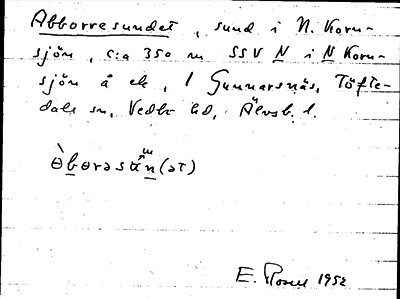 Abborresundet, sund i N. Korn-
sjön, c:a 350 m SSV N i N Korn-
sjön å ek, 1 Gunnarsnäs, Töfte-
dals sn, Vedbo hd, Älvsb. l.
E. Rosell 1952